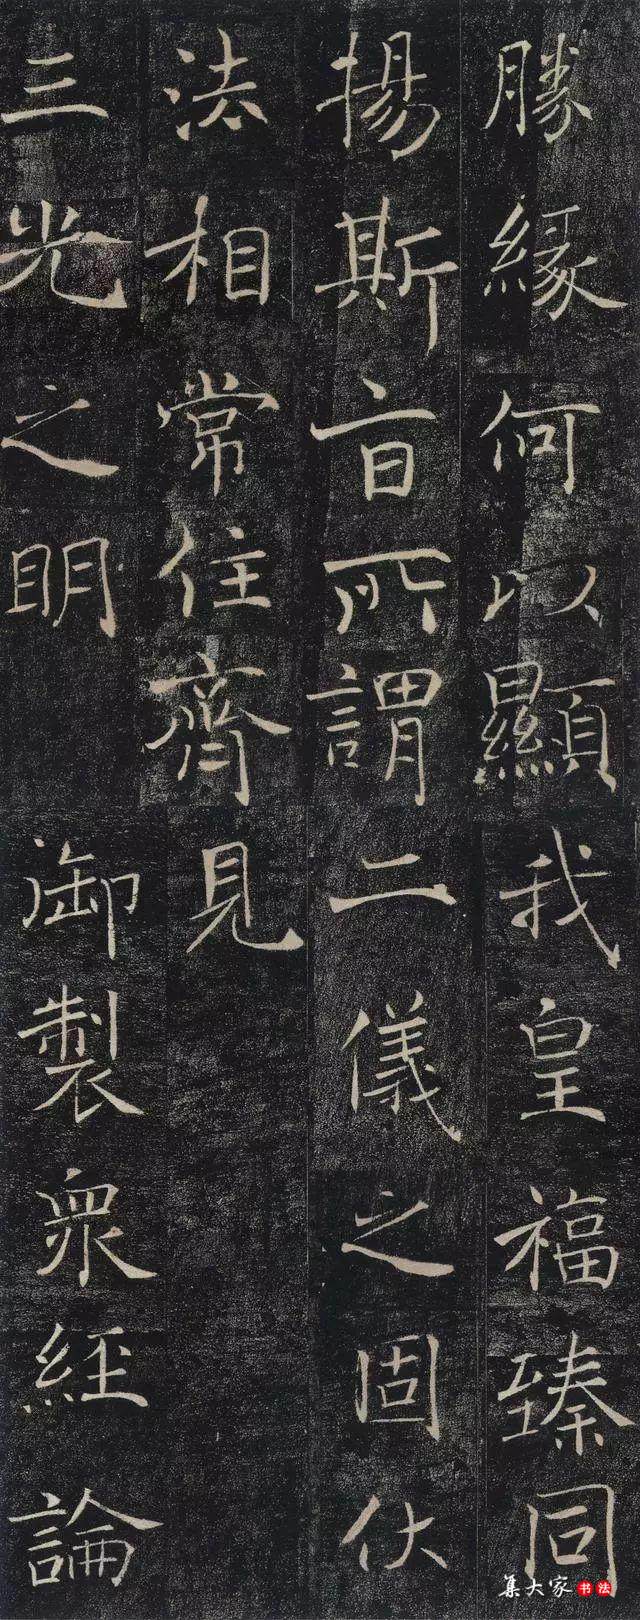 勝緣何以顯
揚斯旨所謂
法相常住齊
三光之明
我皇福臻同
二儀之固伏
見
御製衆經論
集大家书法